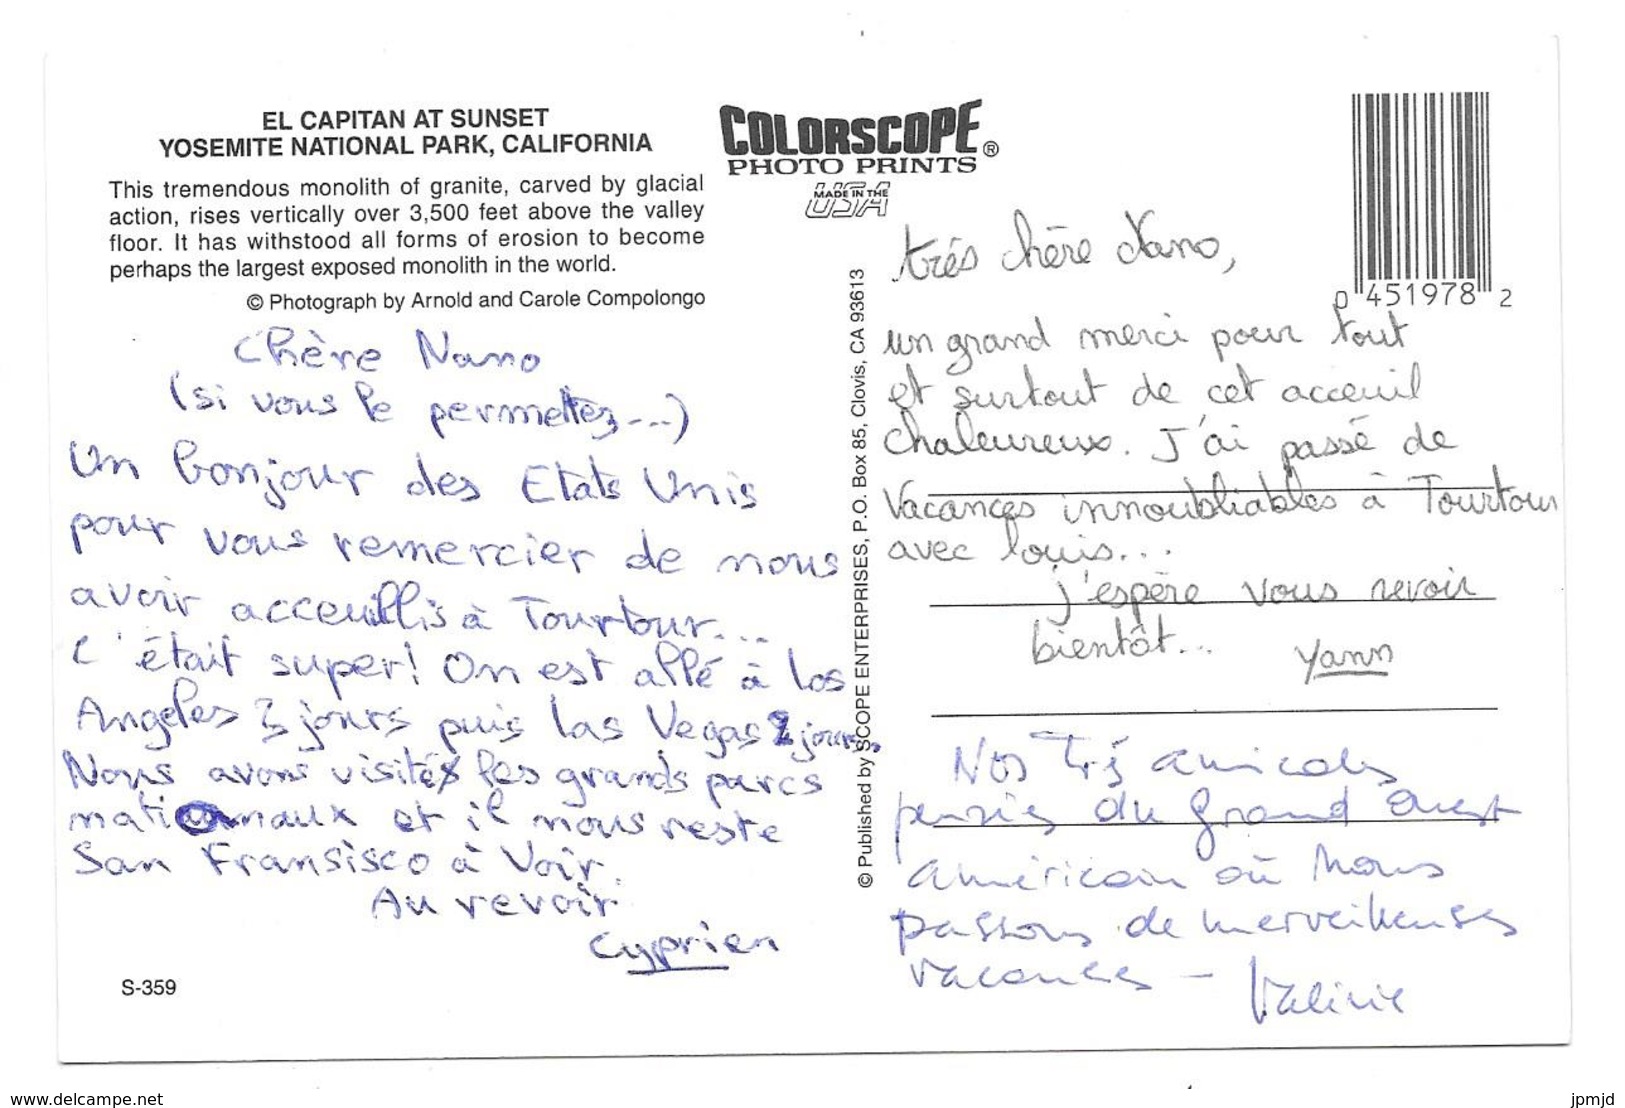 EL CAPITAN AT SUNSET
YOSEMITE NATIONAL PARK, CALIFORNIA
This tremendous monolith of granite, carved by glacial
action, rises vertically over 3,500 feet above the valley
floor. It has withstood all forms of erosion to become
perhaps the largest exposed monolith in the world.
© Photograph by Arnold and Carole Compolongo
Chère Nano
(si vous le permettez...)
Un bonjour des Etats Unis
pour vous remercier de nous
avoir acceuillis à Tourtour...
C'était super! On est allé à Los
Angeles 3 jours puis Las Vegas 2 jours.
Nous avons visités les grands parcs
nationnaux et il nous reste
San Fransisco à voir.
Au revoir
Cyprien
S-359
COLORSCOPE®
PHOTO PRINTS
MADE IN THE
USA
© Published by SCOPE ENTERPRISES, P.O. Box 85, Clovis, CA 93613
0 451978 2
très chère Nano,
un grand merci pour tout
et surtout de cet acceuil
chaleureux. J'ai passé de
vacances innoubliables à Tourtour
avec louis...
j'espère vous revoir
bientôt... Yann
Nos très amicales
pensées du grand Ouest
américain où nous
passons de merveilleuses
vacances - Valérie
www.delcampe.net
jpmjd